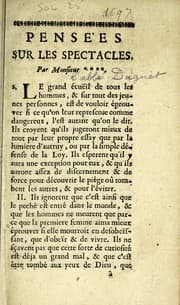 1697
PENSE'ES
SUR LES SPECTACLES,
Par Monsieur ****,
l'abbé Duguet
I. LE grand écuëil de tous les
hommes, & sur tout des jeu-
nes personnes, est de vouloir éprou-
ver si ce qu'on leur represente comme
dangereux, l'est autant qu'on le dit.
Ils croyent qu'ils jugeront mieux de
tout par leur propre essay que par la
lumiere d'autruy, ou par la simple dé-
fense de la Loy. Ils esperent qu'il y
aura une exception pour eux, & qu'ils
auront assez de discernement & de
force pour découvrir le piége où tom-
bent les autres, & pour l'éviter.
II. Ils ignorent que c'est ainsi que
le peché est entré dans le monde, &
que les hommes ne meurent que par-
ce que la premiere femme aima mieux
éprouver si elle mourroit en desobéïs-
sant, que d'obéïr & de vivre. Ils ne
sçavent pas que cette sorte de curiosité
est déja un grand mal, & que c'est
être tombé aux yeux de Dieu, que